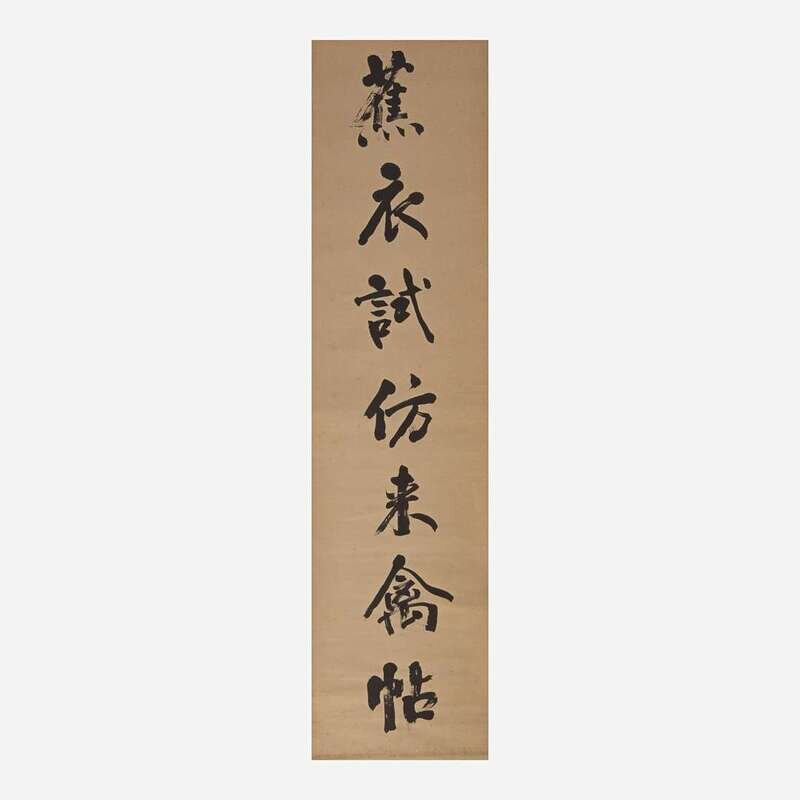 蕉衣試仿来禽帖